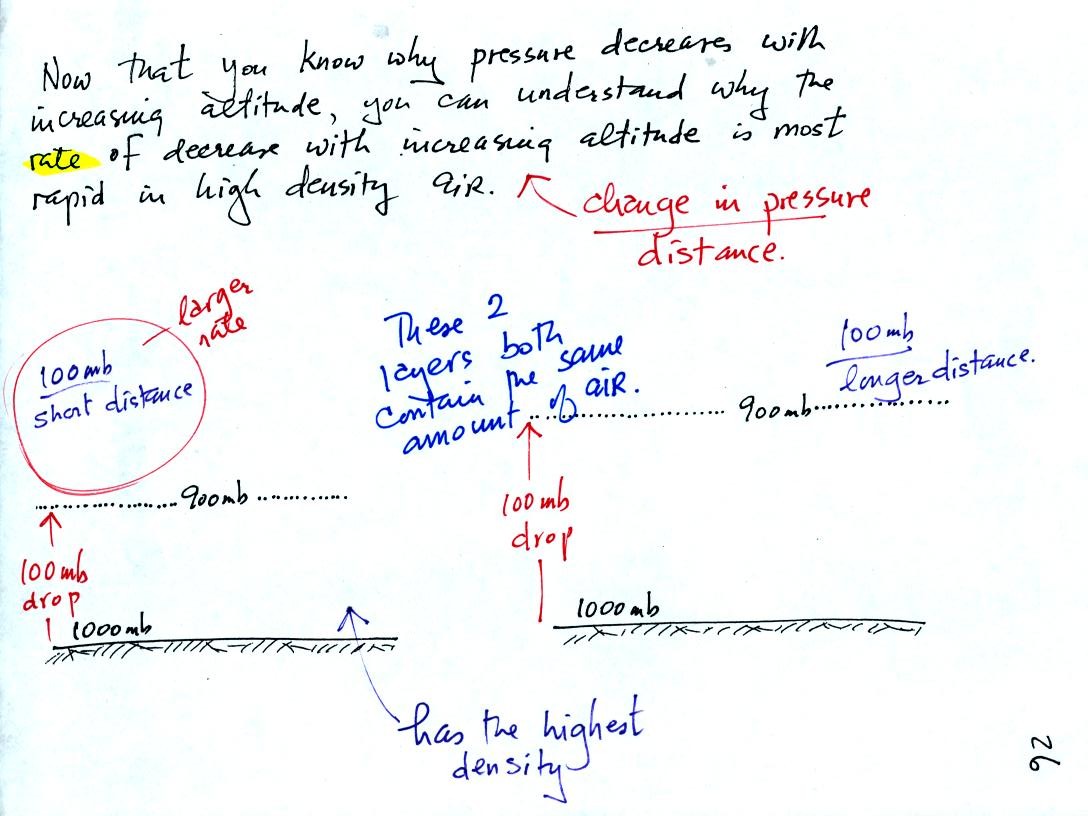 Now that you know why pressure decreases with
increasing altitude, you can understand why the
rate of decrease with increasing altitude is most
rapid in high density air.
change in pressure
distance.
larger
rate
100mb
short distance
These 2
layers both
contain the same
amount of air.
100mb
longer distance.
900mb
900mb
100mb
drop
100mb
drop
1000mb
1000mb
has the highest
density
26